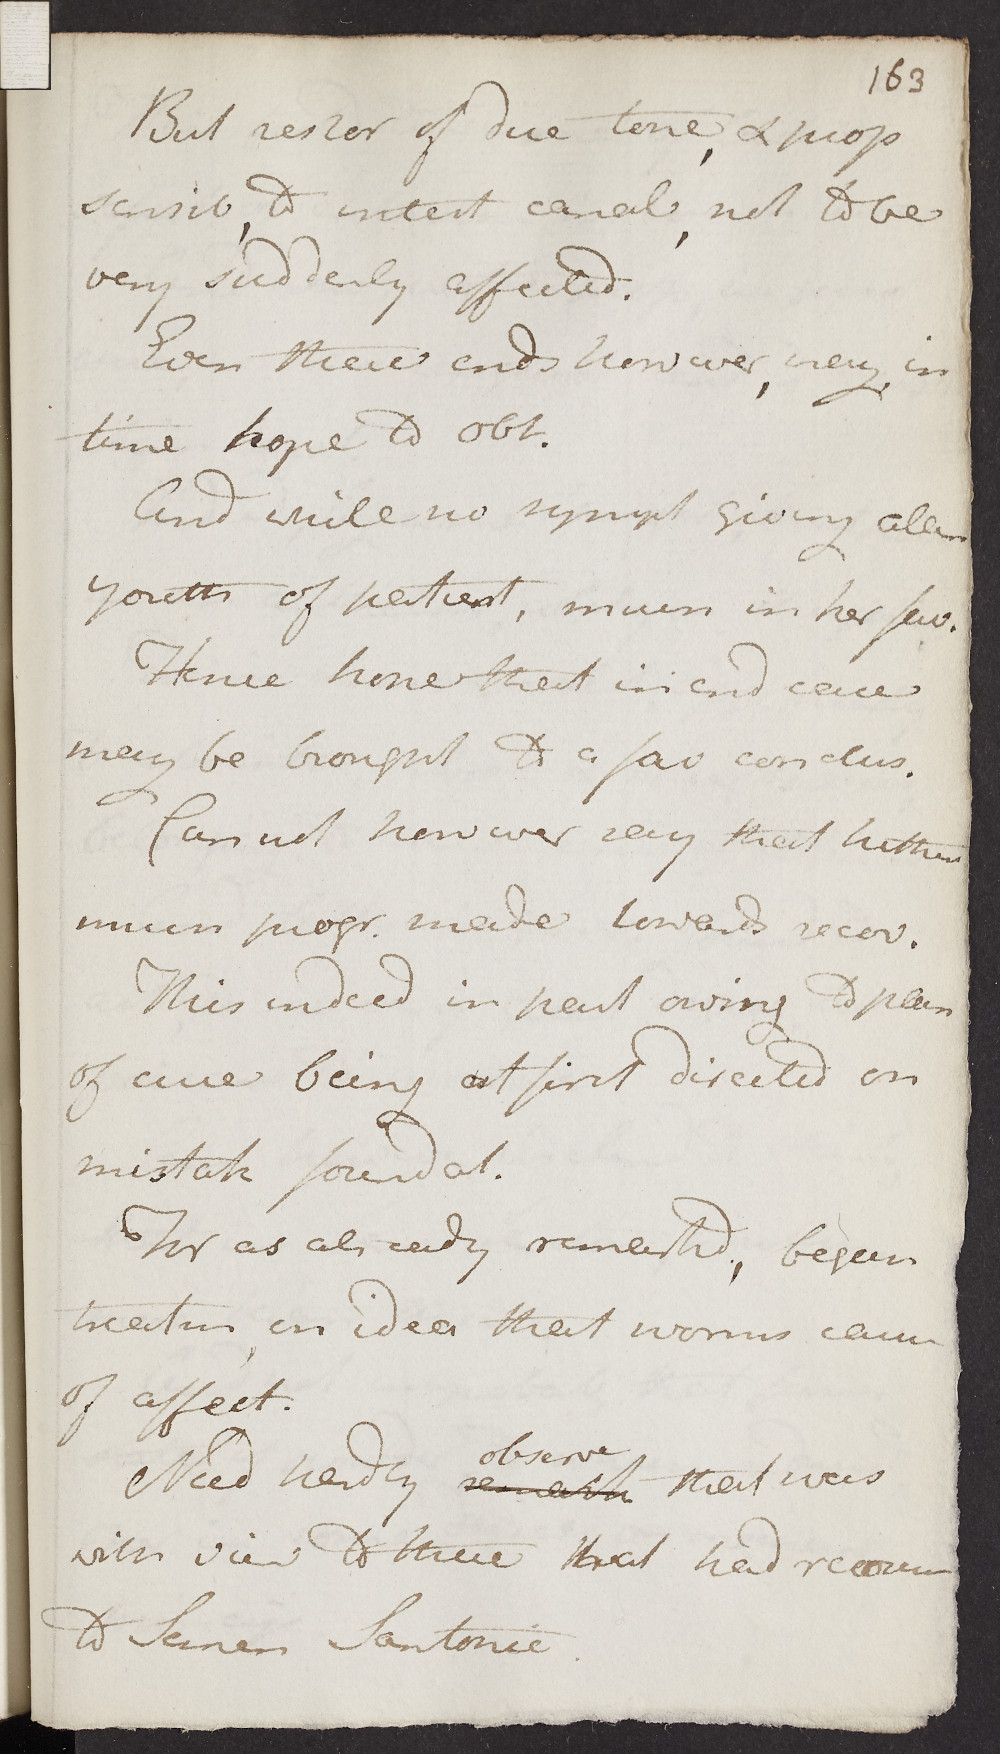 163
But restor of due tone, & prop
sensib, to intest canal, not to be
very suddenly affected.
Even these ends however, may, in
time hope to obt.
And while no sympt giving alarm
youth of patient, much in her fav.
Hence hope that in end case
may be brought to a fav conclus.
Cannot however say that hitherto
much progr. made towards recov.
This indeed in part owing to plan
of cure being at first directed on
mistak foundat.
For as already remarkd, began
treatm, on idea that worms cause
of affect.
Need hardly remark observe that was
with view to these that had recourse
to Semen Santonic